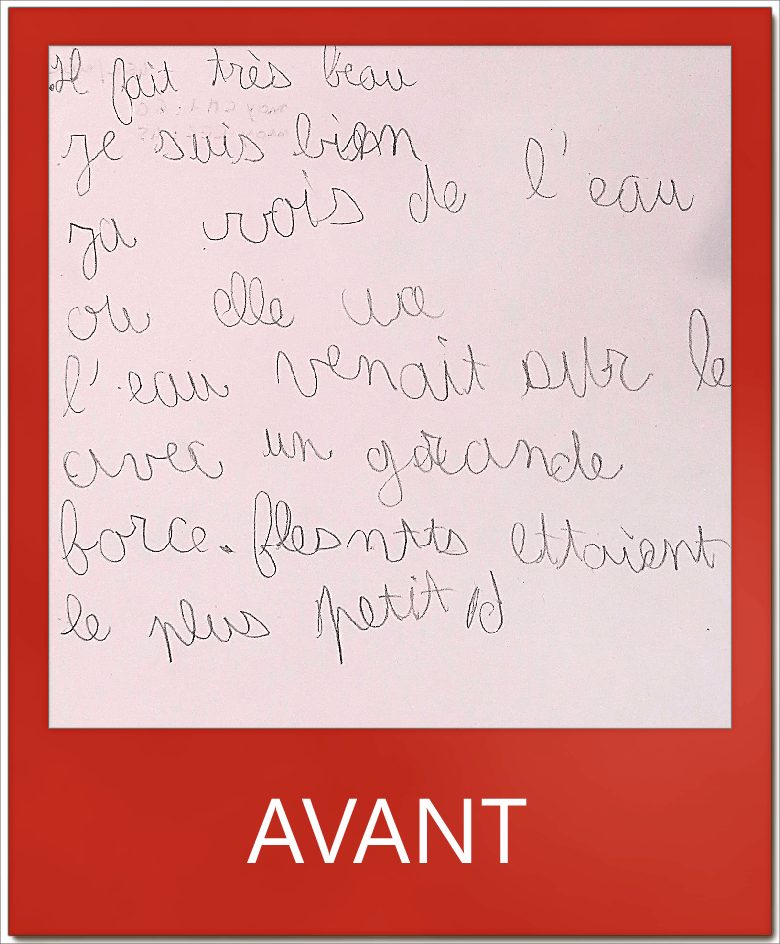 Il fait très beau
je suis bien
ja vois de l'eau
ou elle va
l'eau venait sur le
avec un grande
force. ettaient
le plus petit
AVANT